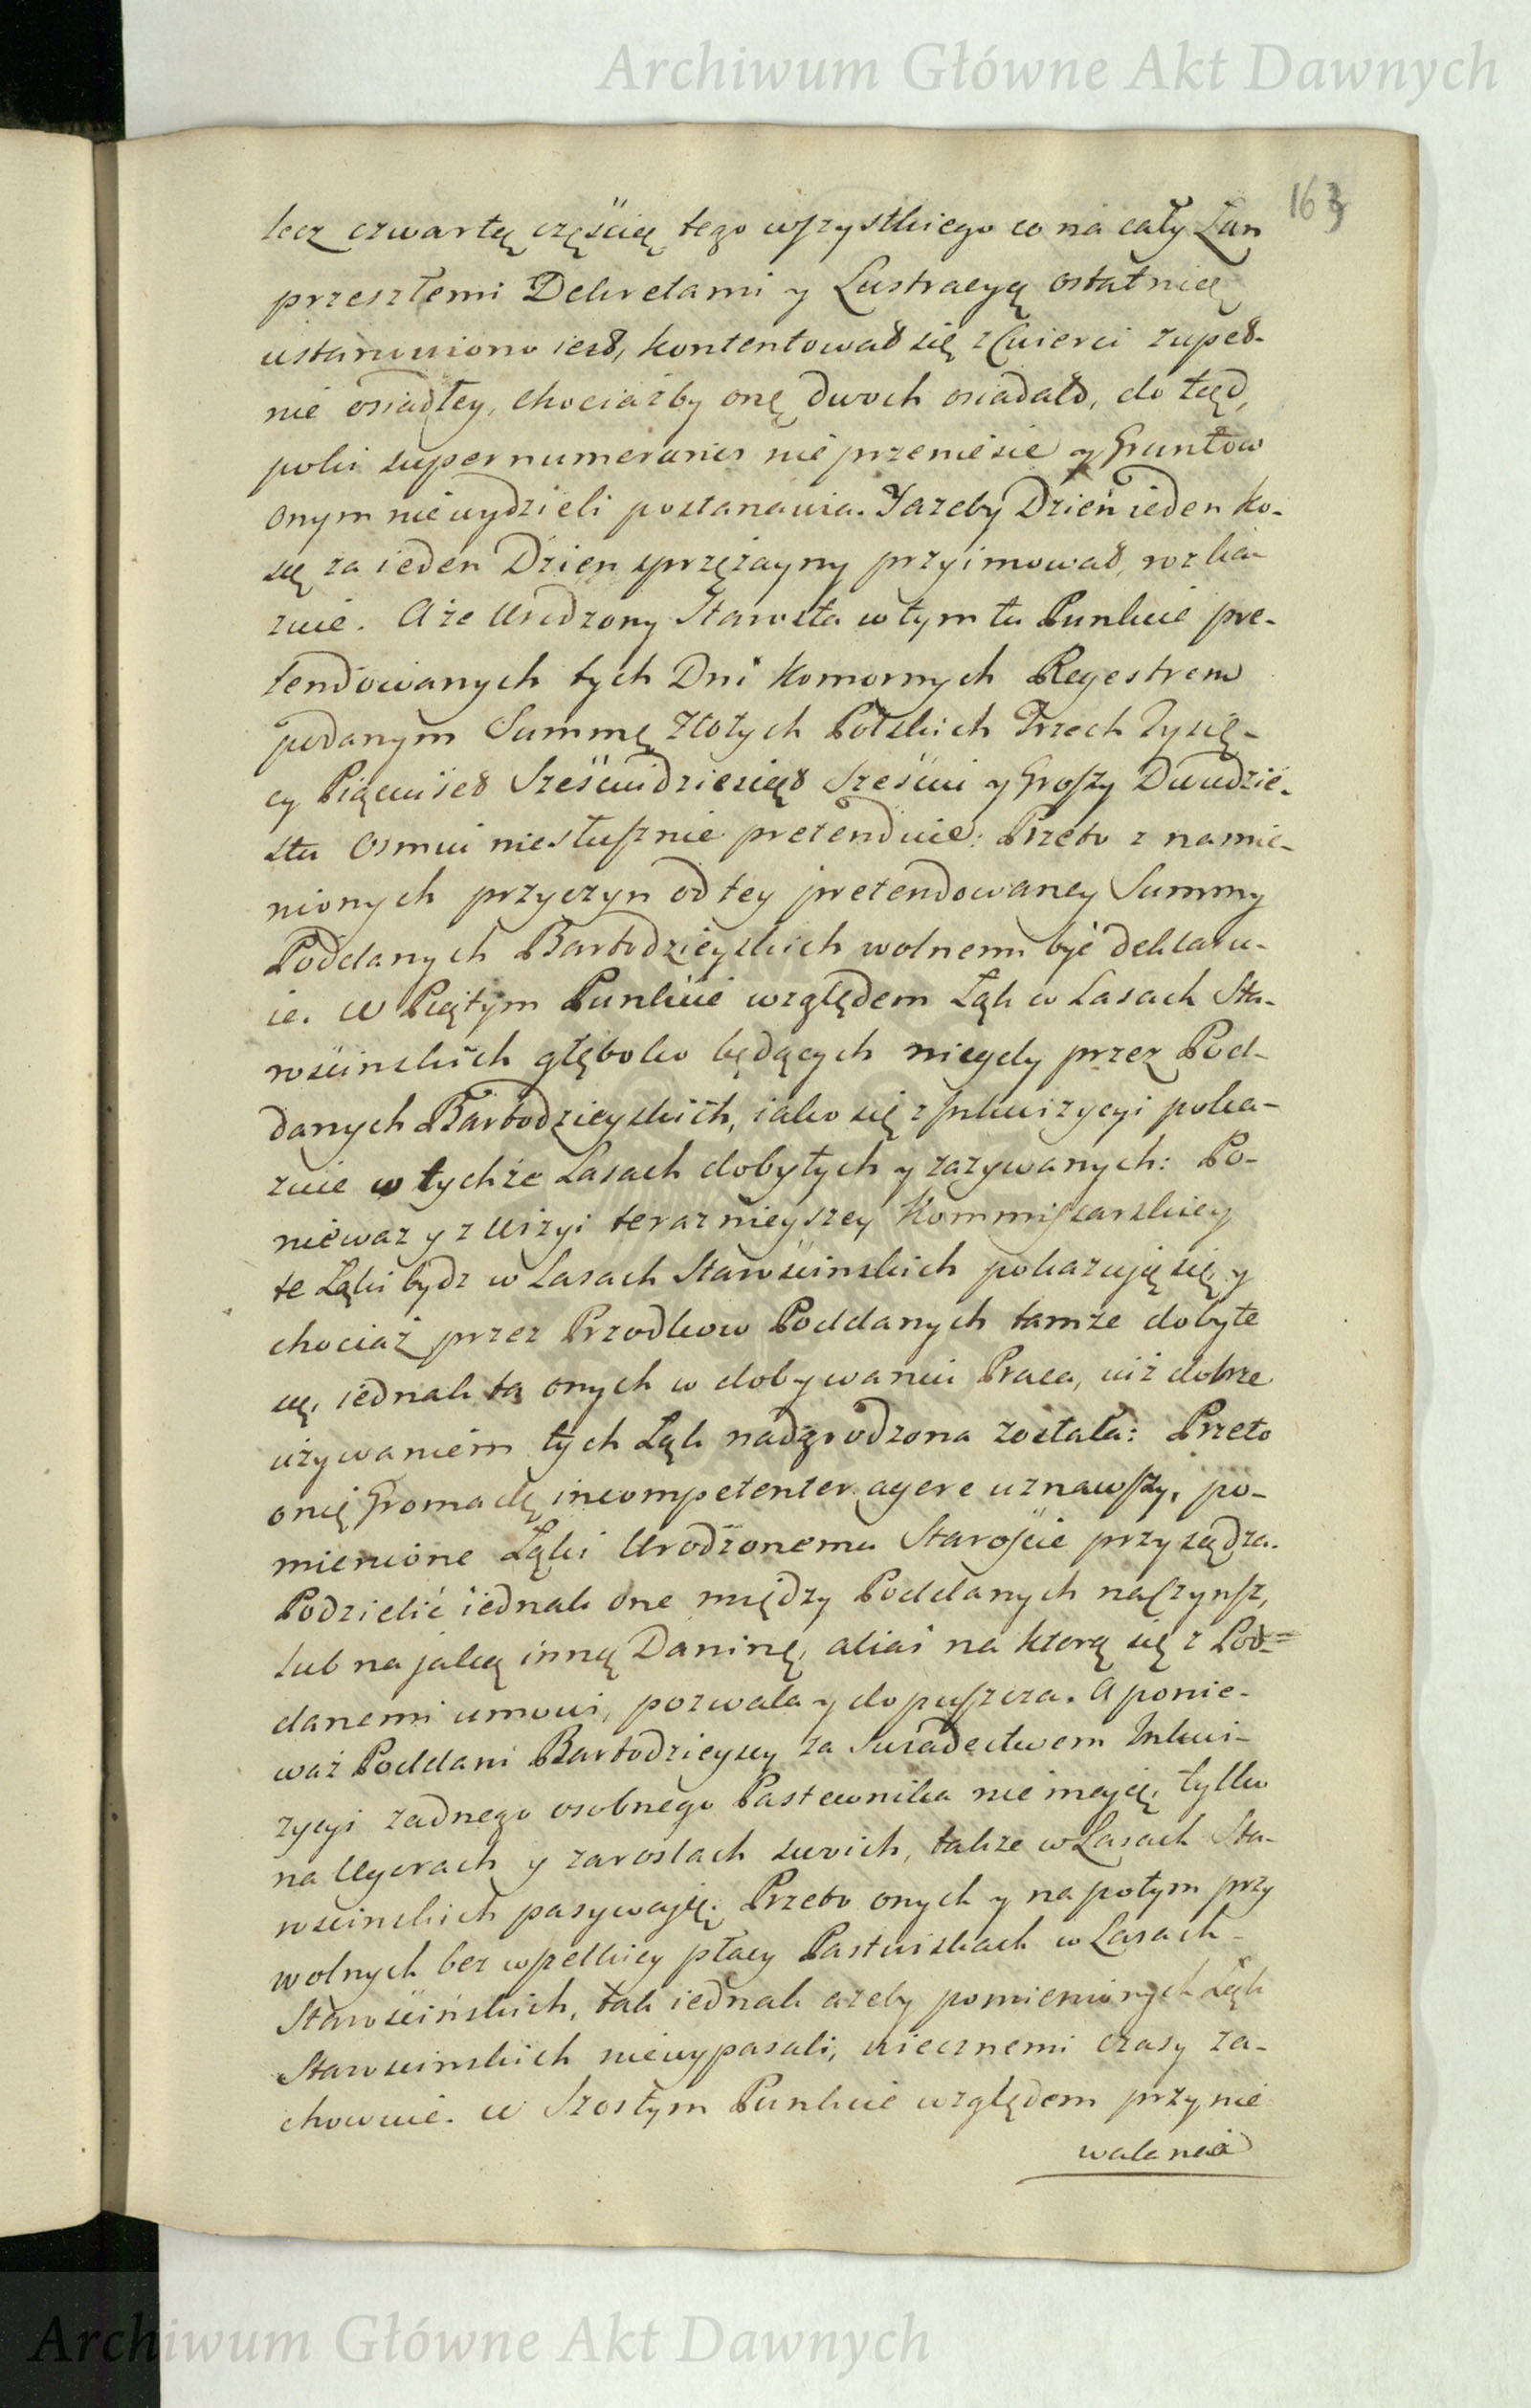 Archiwum Główne Akt Dawnych
163
lecz czwartą częścią tego wszystkiego co na cały Łan
przeszłemi Dekretami y Lustracyą ostatnią
ustanowiono iest, kontentował się z Cwierci zupeł-
nie osiadłey, chociażby onę dwoch osiadało, do tąd,
poki supernumeraries nie przeniesie y Gruntow
onym nie wydzieli postanawia. Y azeby Dzień ieden ko-
są za ieden Dzien sprzężayny przyimował, rozka-
zuie. A że Urodzony Starosta w tym tu Punkcie pre-
tendowanych tych Dni komornych Regestrem
podanym Summę Złotych Polskich Trzech Tysię-
cy Piąciuset Sześciudziesiąt Sześciu y Groszy Dwudzie-
stu Osmiu niesłusznie pretenduie: Przeto z namie-
nionych przyczyn od tey pretendowaney Summy
Poddanych Bartodzieyskich wolnemi być deklaru-
ie. W Piątym Punkcie względem Łąk w Lasach Sta-
rościnskich głęboko będących niegdy przez Pod-
danych Bartodzieyskich, iako się z Inkwizycyi poka-
zuie w tychże Lasach dobytych y zazywanych: Po-
nieważ y z Wizyi teraznieyszey Kommissarskiey
te Łąki bydz w Lasach Starościnskich pokazują się, y
chociaż przez Przodkow Poddanych tamze dobyte
są, iednak ta onych w dobywaniu Praca, iuż dobrze
używaniem tych Łąk nadgrodzona została: Przeto
onę Gromadę incompetenter agere uznawszy, po-
mienione Łąki Urodzonemu Staroście przysądza.
Podzielić iednak one między Poddanych na Czynsz,
lub na jaką inną Daninę, alias na ktorą się z Pod=
danemi umowi, pozwala y dopuszcza. A ponie-
waż Poddani Bartodzieyscy za Swiadectwem Inkwi-
zycyi żadnego osobnego Pastewnika nie maią, tylko
na Ugorach y zaroslach swoich, takze w Lasach Sta-
rościnskich pasywaią: Przeto onych y na potym przy
wolnych bez wszelkiey płacy Pastwiskach w Lasach
Starościńskich, tak iednak azeby pomienionych Łąk
Starościnskich niewypasali, wiecznemi czasy za-
chowuie. W Szostym Punkcie względem przynie
walania
Archiwum Główne Akt Dawnych